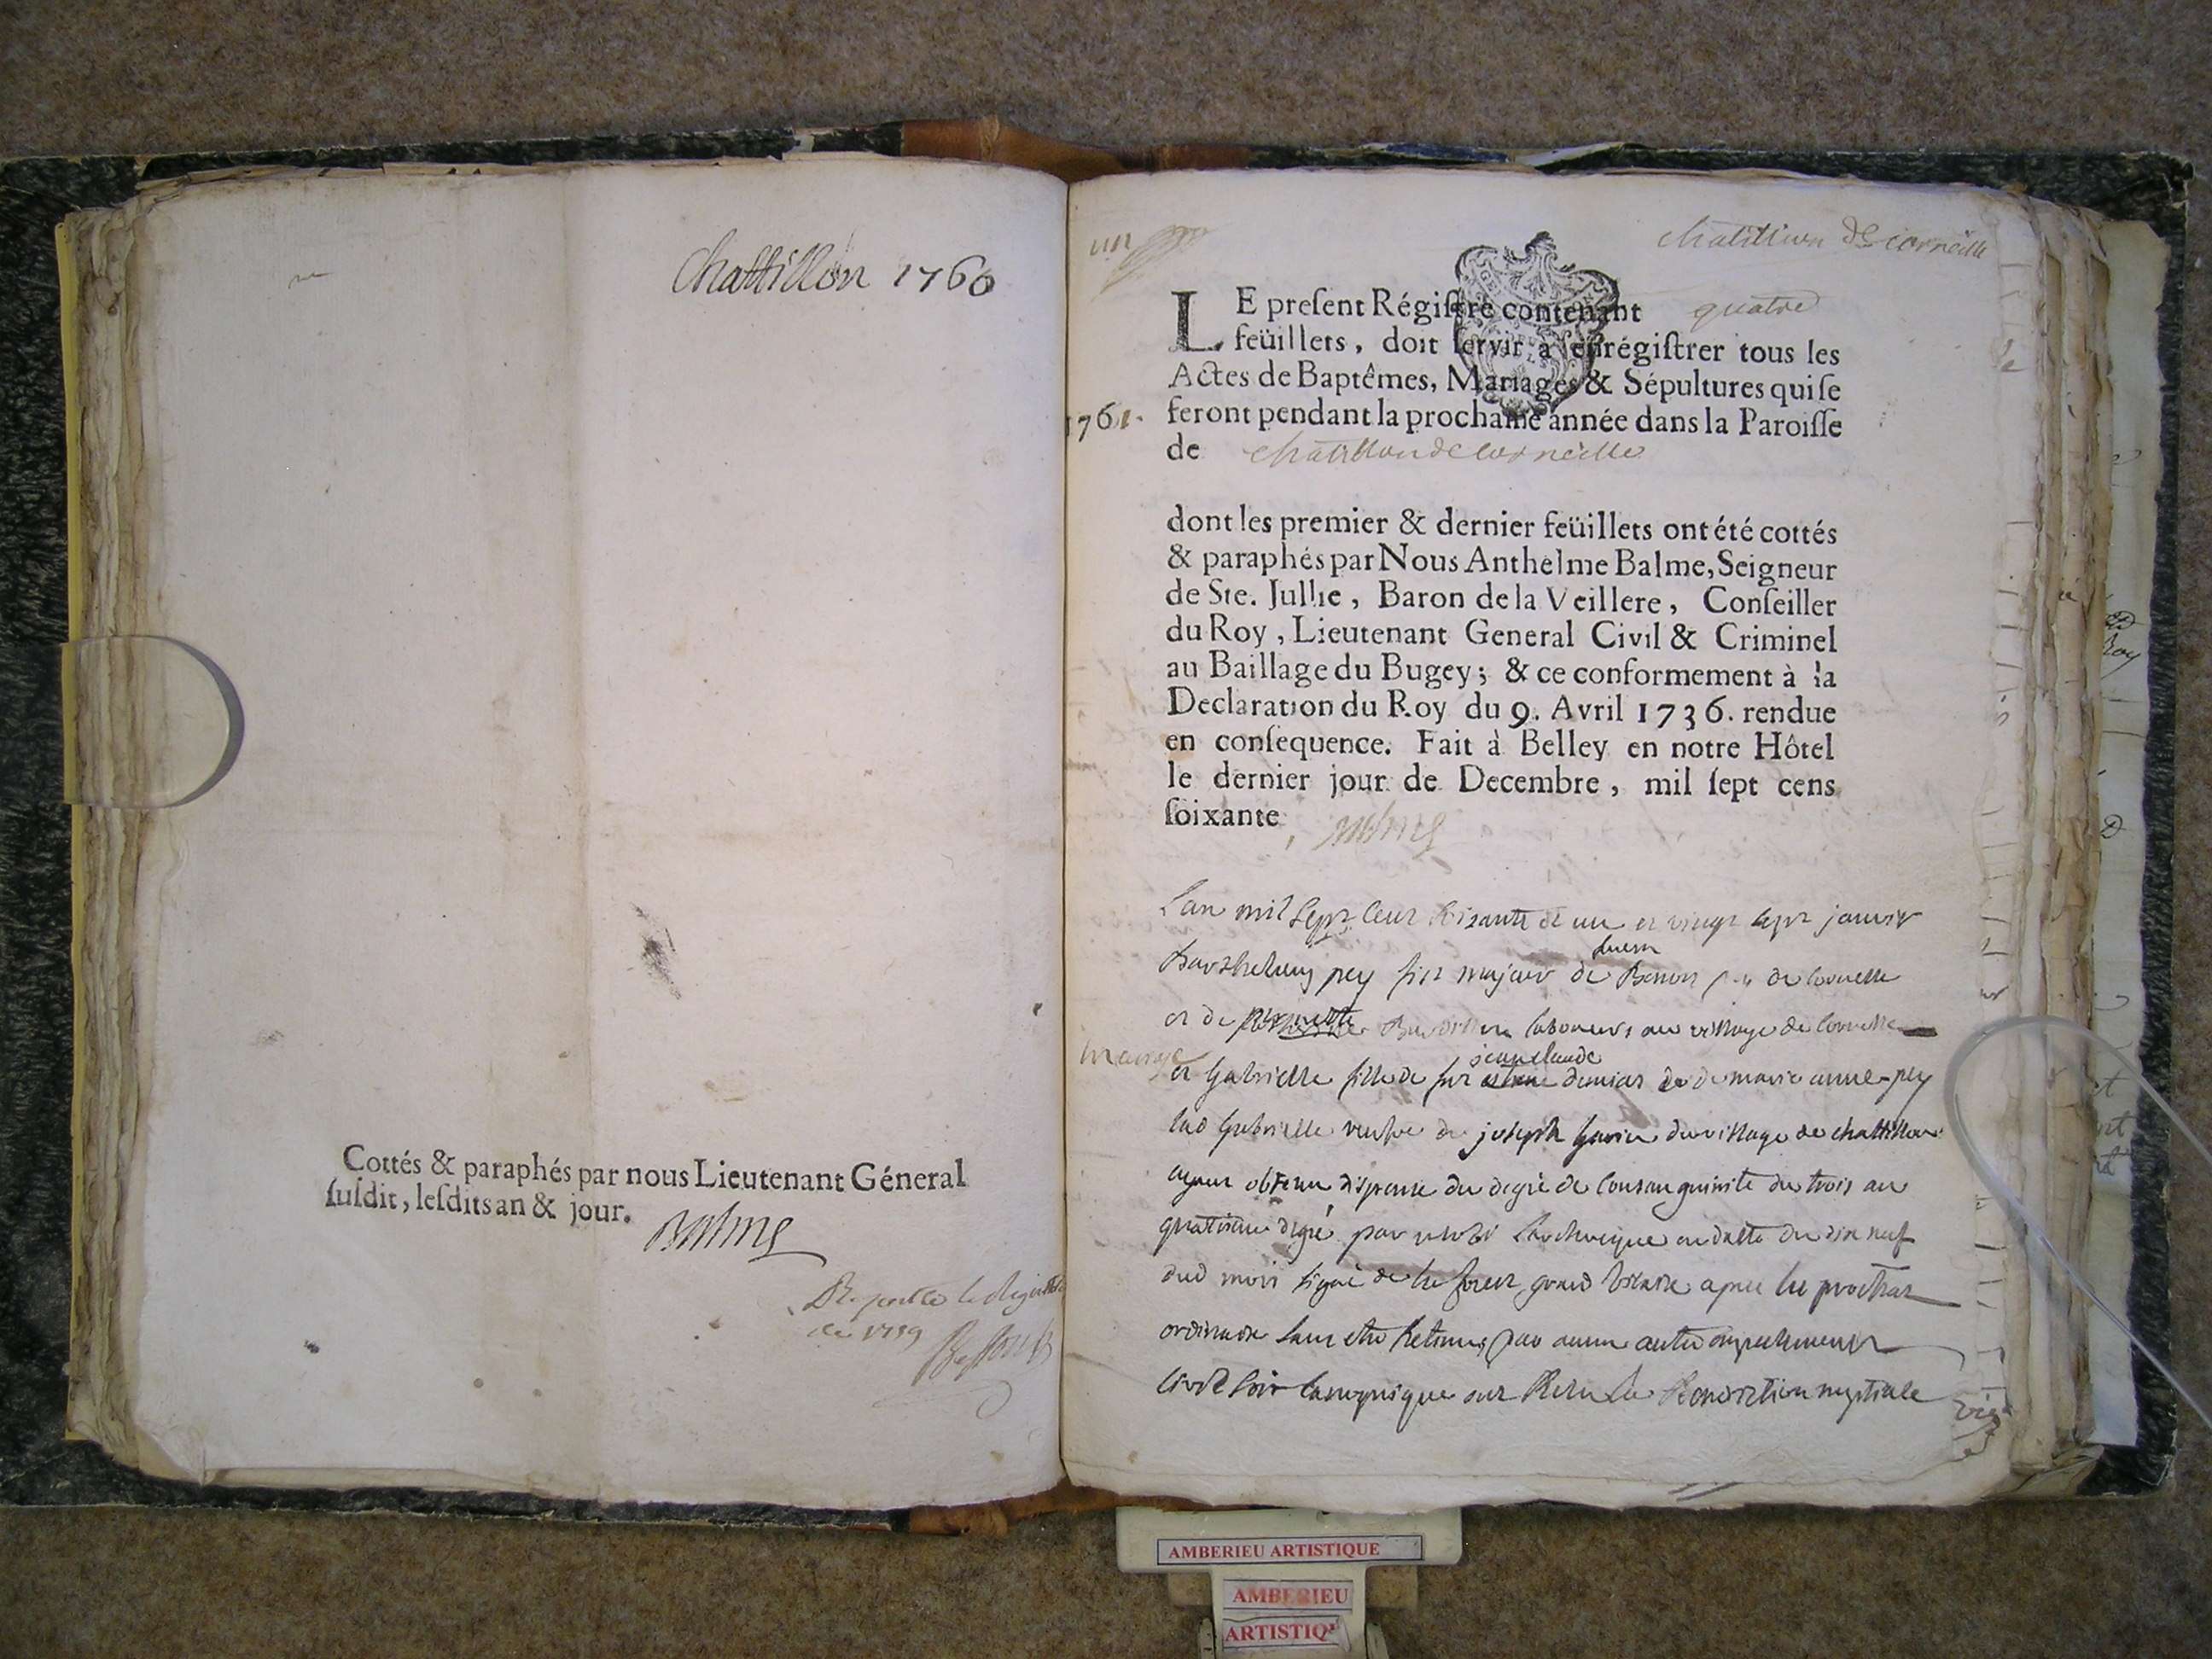 Chattillon 1760
Cottés & paraphés par nous Lieutenant Géneral
ſuſdit, leſdits an & jour.
Balme
un
chatillion de corneille
LE preſent Régiſtre contenant quatre
feüillets, doit ſervir à enrégiſtrer tous les
Actes de Baptêmes, Mariages & Sépultures qui ſe
feront pendant la prochaine année dans la Paroiſſe
1761.
de chatillon de corneille
dont les premier & dernier feüillets ont été cottés
& paraphés par Nous Anthelme Balme, Seigneur
de Ste. Jullie, Baron de la Veillere, Conſeiller
du Roy, Lieutenant General Civil & Criminel
au Baillage du Bugey; & ce conformement à la
Declaration du Roy du 9. Avril 1736. rendue
en conſequence. Fait à Belley en notre Hôtel
le dernier jour de Decembre, mil ſept cens
ſoixante, Balme
L'an mil sept cent soixante et un et vingt sept janvier
pey fils majeur de de Cornelle
et de laboureurs au village de Cornelle
mariage
jean claude
et Gabrielle fille de fut de marie anne pey
lad Gabrielle veufve de joseph du village de chattillon
ayant obtenu dispense du degré de consanguinité du trois au
quatrieme degré par l'archeveque en datte du dix neuf
dud mois signé de grand vicaire apres les
ordinaire sans etre par aucun autre empechement
civil soit canonique ont Recu la Benediction nuptiale
AMBERIEU ARTISTIQUE
AMBERIEU
ARTISTIQ